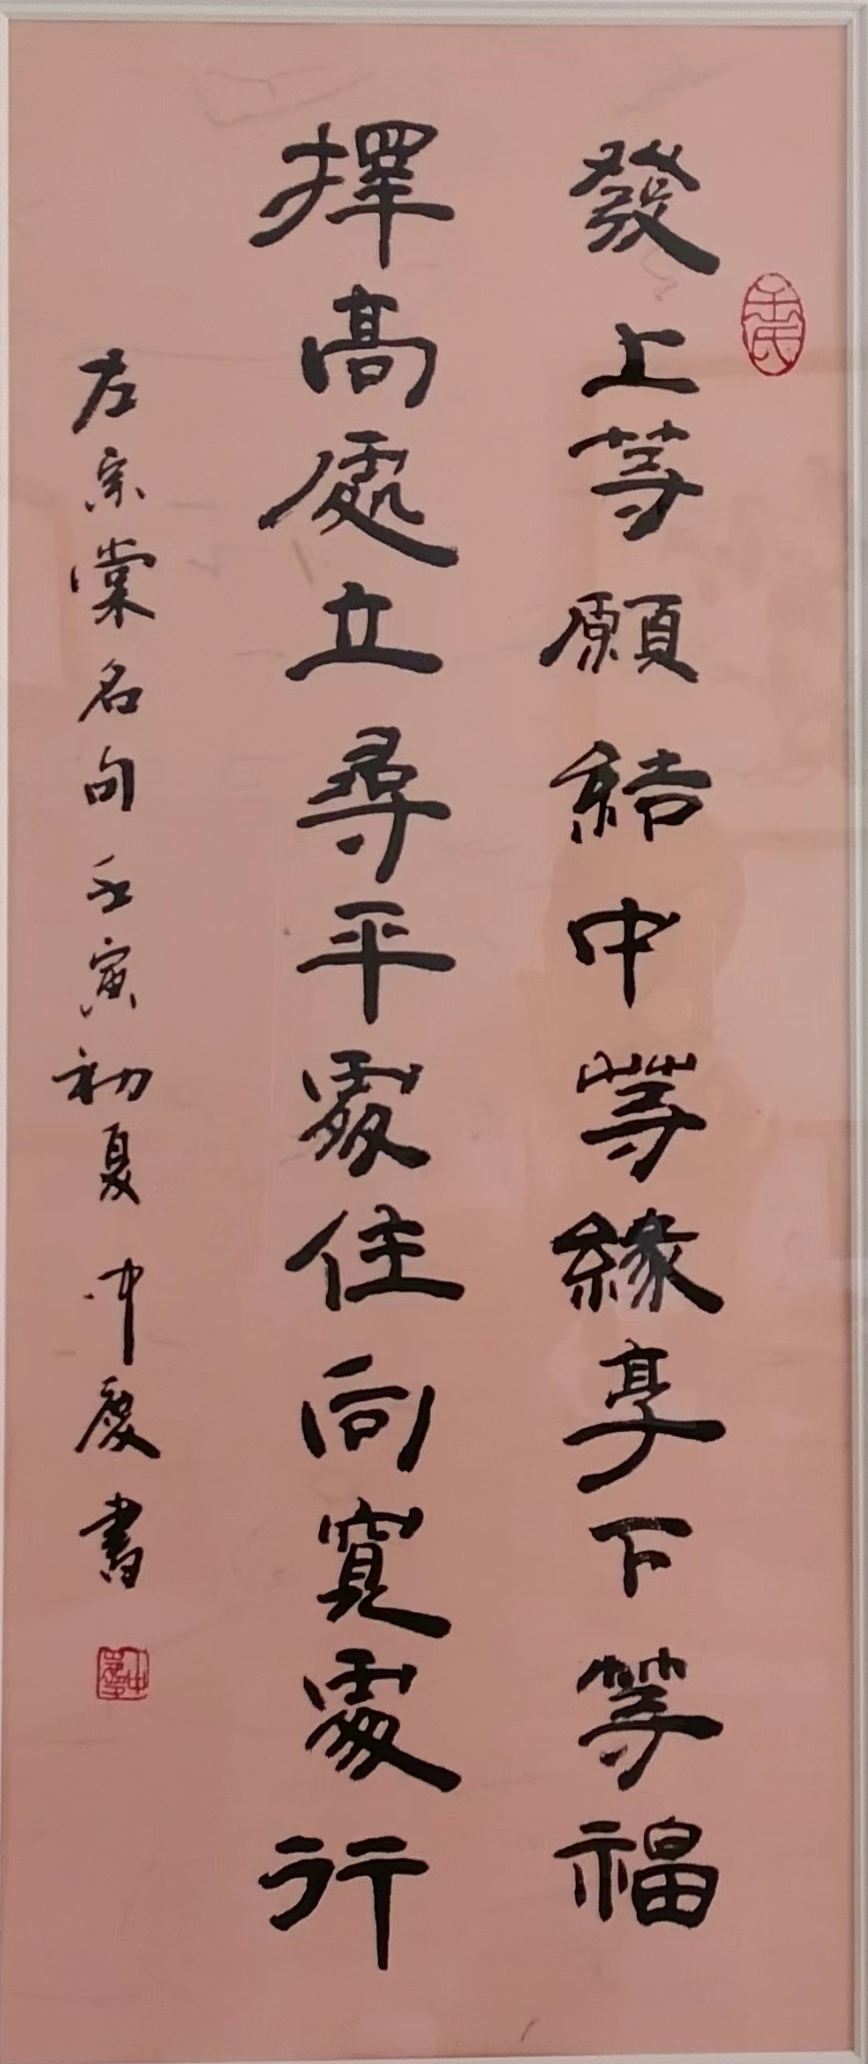 發上等願結中等緣享下等福
擇高處立尋平處住向寬處行
左宗棠名句壬寅初夏冲慶書